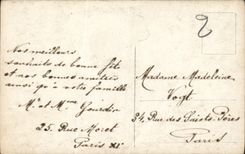 Nos meilleurs
souhaits de bonne fête
et nos bonnes amitiés
ainsi qu'à votre famille
Mr et Mme Gourdin
25, Rue Moret
Paris XIe
2
Madame Madeleine
Vogt
34, Rue des Saints-Pères
Paris